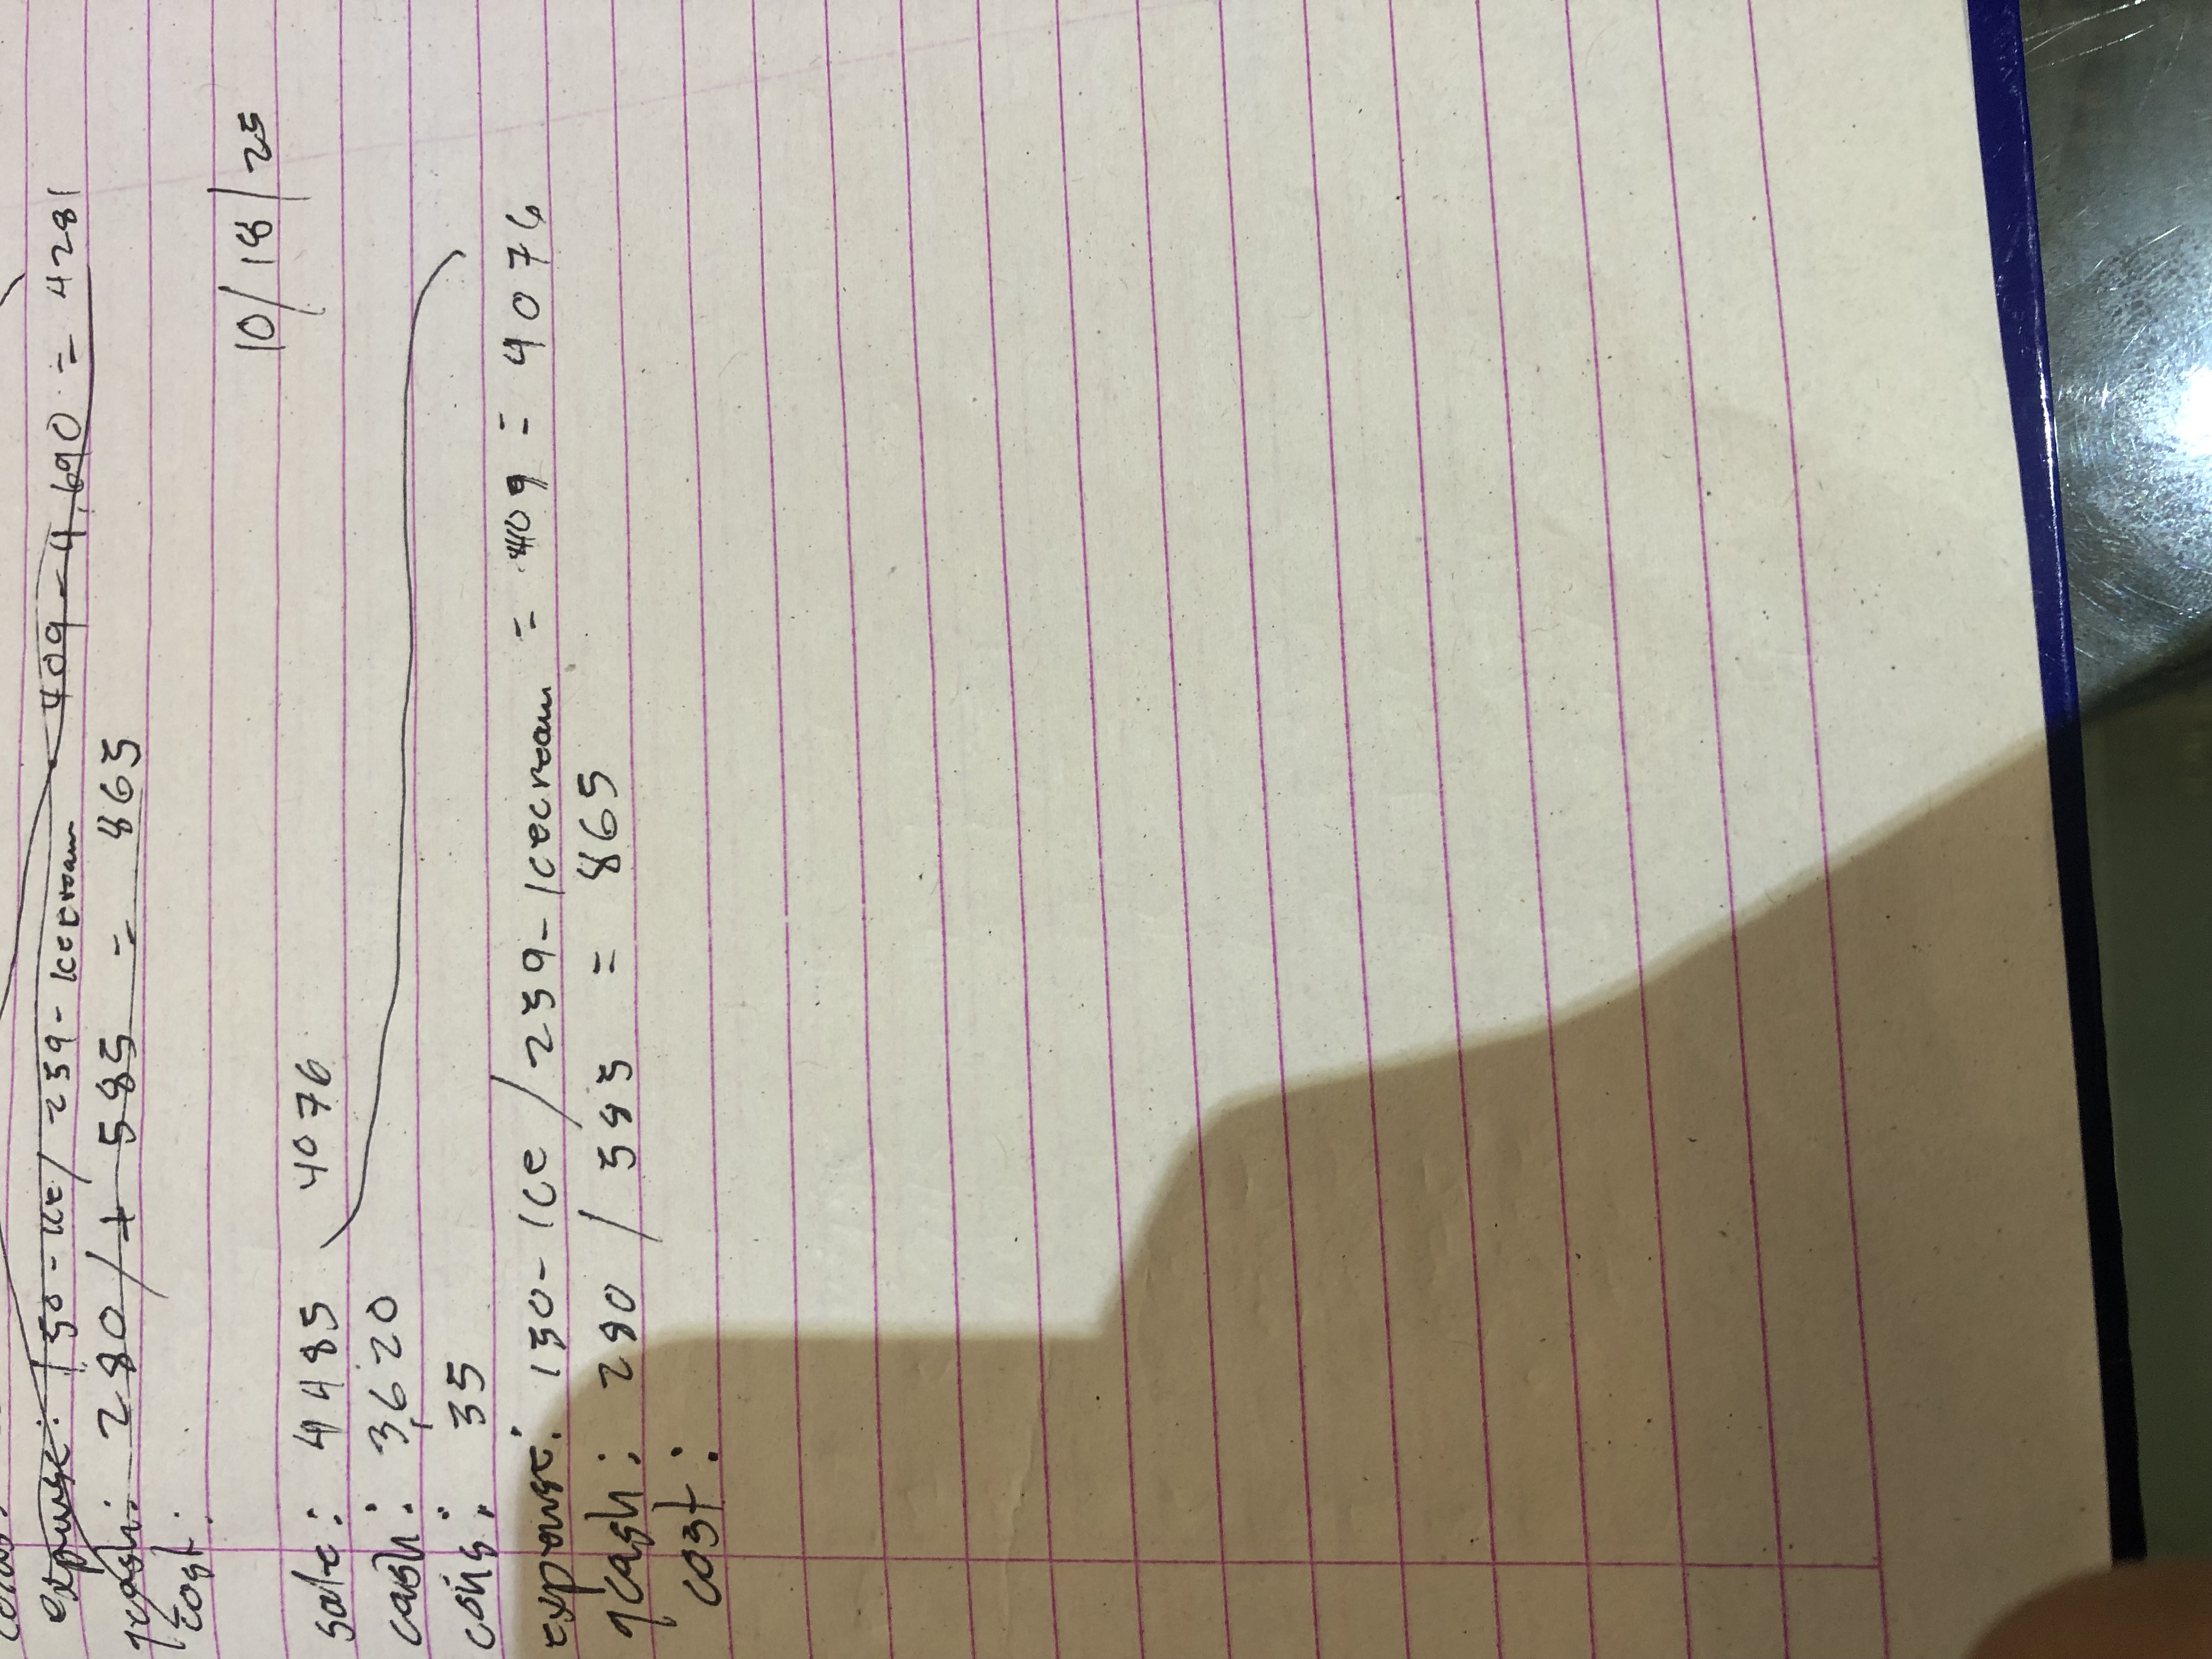 expense: 150-Ice/ 259-Icecream 409-4,690 = 4281
gcash: 280 / + 585 = 865
cost:
10/18/25
sale: 4485 4076
cash: 3,620
coins: 35
expense: 150-Ice / 259-Icecream = 409 = 4076
gcash: 280 / 585 = 865
cost: